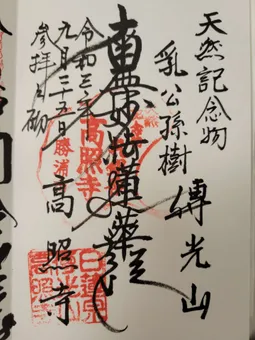 天然記念物
乳公孫樹
傳光山
南無妙法蓮華経
高照寺
令和三年
九月二十五日
参拝之砌
勝浦
高照寺